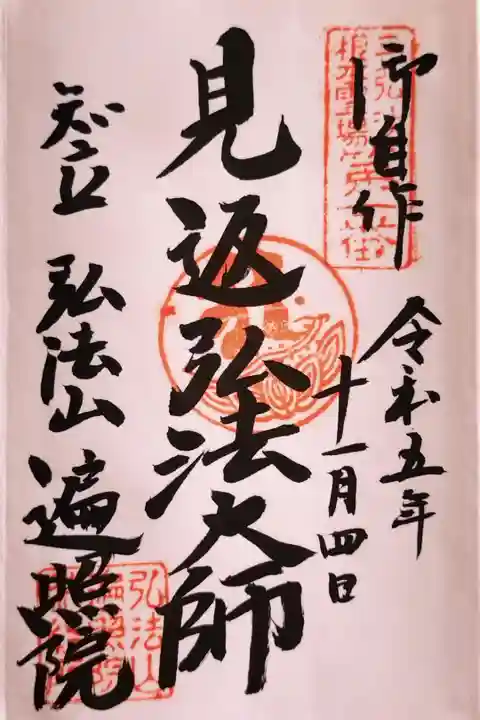 御自作
令和五年
十一月四日
見返弘法大師
知立 弘法山 遍照院
弘法山
遍照院